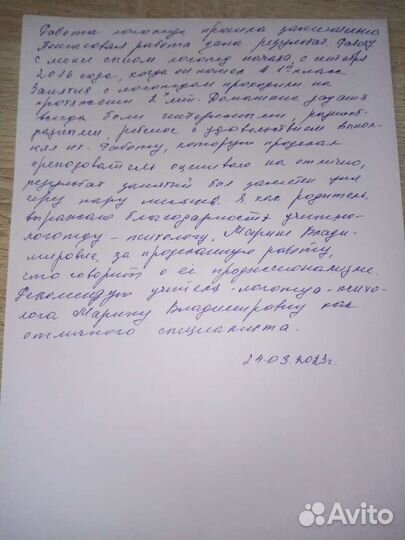 Работа логопеда прошла замечательно
Поэтаповая работа дала результат. Работу
с моим сыном логопед начала, с сентября
2016 года, когда он пошел в 1й класс.
Занятия с логопедом проходили на
протяжении 2 лет. Домашние задания
всегда были интересными, разнооб-
разными, ребенок с удовольствием выпол-
нял их. Работу, которую проделал
преподаватель оцениваю на отлично,
результат занятий был заметен уже
через пару месяцев. Я, как родитель,
выражаю благодарность учителю-
логопеду-психологу, Марине Влади-
мировне, за проделанную работу,
что говорит о её профессионализме.
Рекомендую учителя-логопеда-психо-
лога Марину Владимировну как
отличного специалиста.
24.03.2023г.
Avito